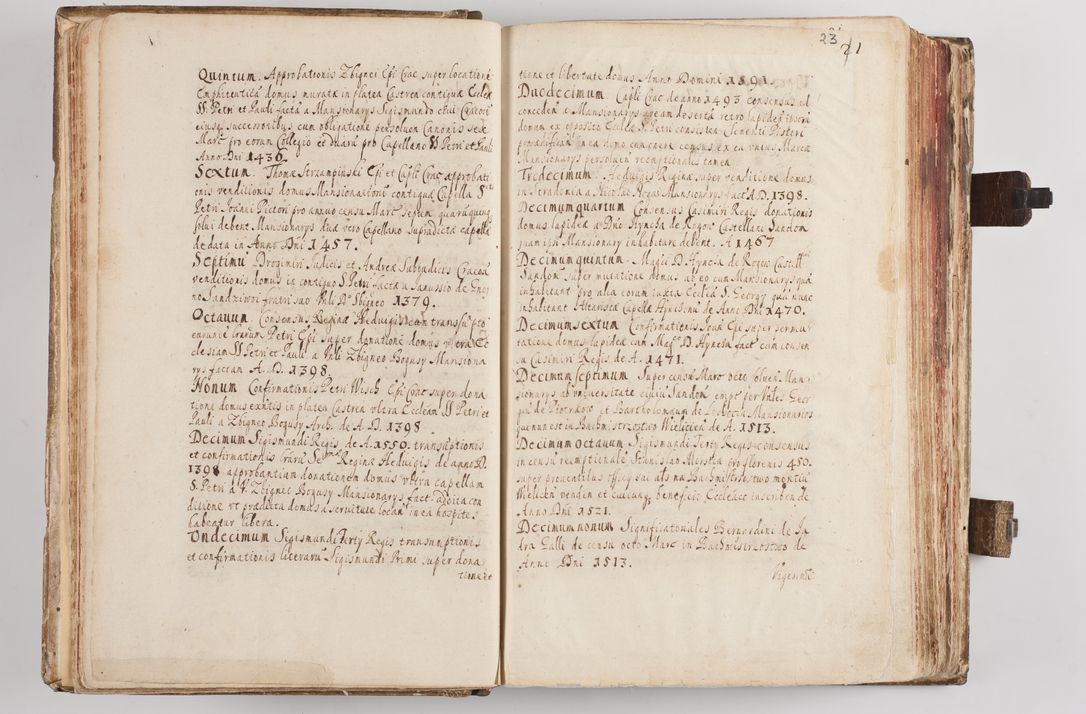 Quintum. Approbationis Zbignei Epi Crac. super locatione
Emphiteutica domus murata in platea Castren contigua Ecclæ
SS Petri et Pauli facta a Mansionarys Sigismundo
eiusq successoribus cum obligatione persoluen Canonis sex
Marc pro eorum Collegio et duaru pro Capellano SS Petri et Pauli
Anno Dni 1436.
Sextum. Thomæ Strzampinski Epi et Capli Crac approbati
onis venditionis domus Mansionarioru contigua Capella S
Petri Joanei Pictori pro annuo censu Marc septem quaru quinq
solui debent Mansionarys dua vero Capellano supradicta capellæ
de data in Anno Dni 1457.
Septimu Drogimiri Judicis et Andreæ Subiudicis Cracou
venditionis domus in contiguo S. Petri facta a Janussio de
no Sandziwoi fratri suo Nli Dº Sbigneo 1379.
Octauum Consensus Reginæ Heduigis cum transsupto
earunde lrarum Petri Epi super donatione domus vltra Ec
clesiam SS Petri et Pauli a Nli Zbigneo Bogusy Mansiona
rys factan A. D. 1398.
Nonum Confirmationis Petri Wisch Epi Crac super dona
tione domus exntis in platea Castren vltra Eccleam SS Petri et
Pauli a Zbigneo Bogusy Arch. de A D. 1398
Decimum Sigismundi Regis de A. 1550. transuptionis
et confirmationis lraru Reginæ Heduigis de anno D.
1398 approbantium donationem domus vltra capellam
S. Petri a V. Zbigneo Bogusy Mansionarys fact addita con
ditione vt prædicta domus a seruitute locan in ea hospites
habeatur libera.
Vndecimum Sigismundi Terty Regis transumptionis
et confirmationis literaru Sigismundi Primi super dona
tione et
23 71
tione et libertate domus Anno Domini 1591.
Duodecimum Capli Crac de anno 1493 consensus ad
conceden a Mansionarys aream deserta retro lapidea ipsoru
domum ex opposito Ecclæ S. Petri consisten Clementi Pistori
pro ædifican in ea domo cum onere census ex ea vnius Marcæ
Mansionarys persoluen reemptionalis tamen
Tredecimum. Heduigis Reginæ super venditione domus
in Stradomia a Nicolai Mansionarys fact A.D. 1398.
Decimum quartum Consensus Casimiri Regis donationis
domus lapideæ a Dno Hyncza de Rogow Castellan Sandom
quam ipsi Mansionary inhabitare debent. A 1467
Decimum quintum. Magci D. Hyncza de Rogow Castell
Sandom super mutatione domus ab eo cum Mansionarys qua
inhabitant pro alia eorum iuxta Eccleā S. Georgy qua nunc
inhabitant Altaristæ Capellæ Hynczinæ de Ann Dni 1470.
Decimum sextum Confirmationis Joan Epi super permu
tatione domus lapideæ cum Magco D. Hyncza fact cum consen
su Casimiri Regis de A. 1471.
Decimum septimum Super censu Marc octo soluen Man
sionarys ab vniuersitate ciuiu Sandom empt per Vnles Geor
giu de Piotrkow et Bartholomæum de Mansionarios
quem nunc est in Bachmistrzostwo Wieliciem de A. 1513.
Decimum octauum Sigismundi Terty Regis consensus
in censu reemptionale Stanislao Morsztin pro florenis 450.
super prouentibus officy sui als na Bachmistrzostwo montiu
Wielicien venden et cuicunq beneficio Ecclæiæ inscriben de
Anno Dni 1521.
Decimum nonum Significatoriales Bernardini de Ja
dra Galli de censu octo Marc in Bachmistrzostwo de
Anno Dni 1513.
Vigesimū